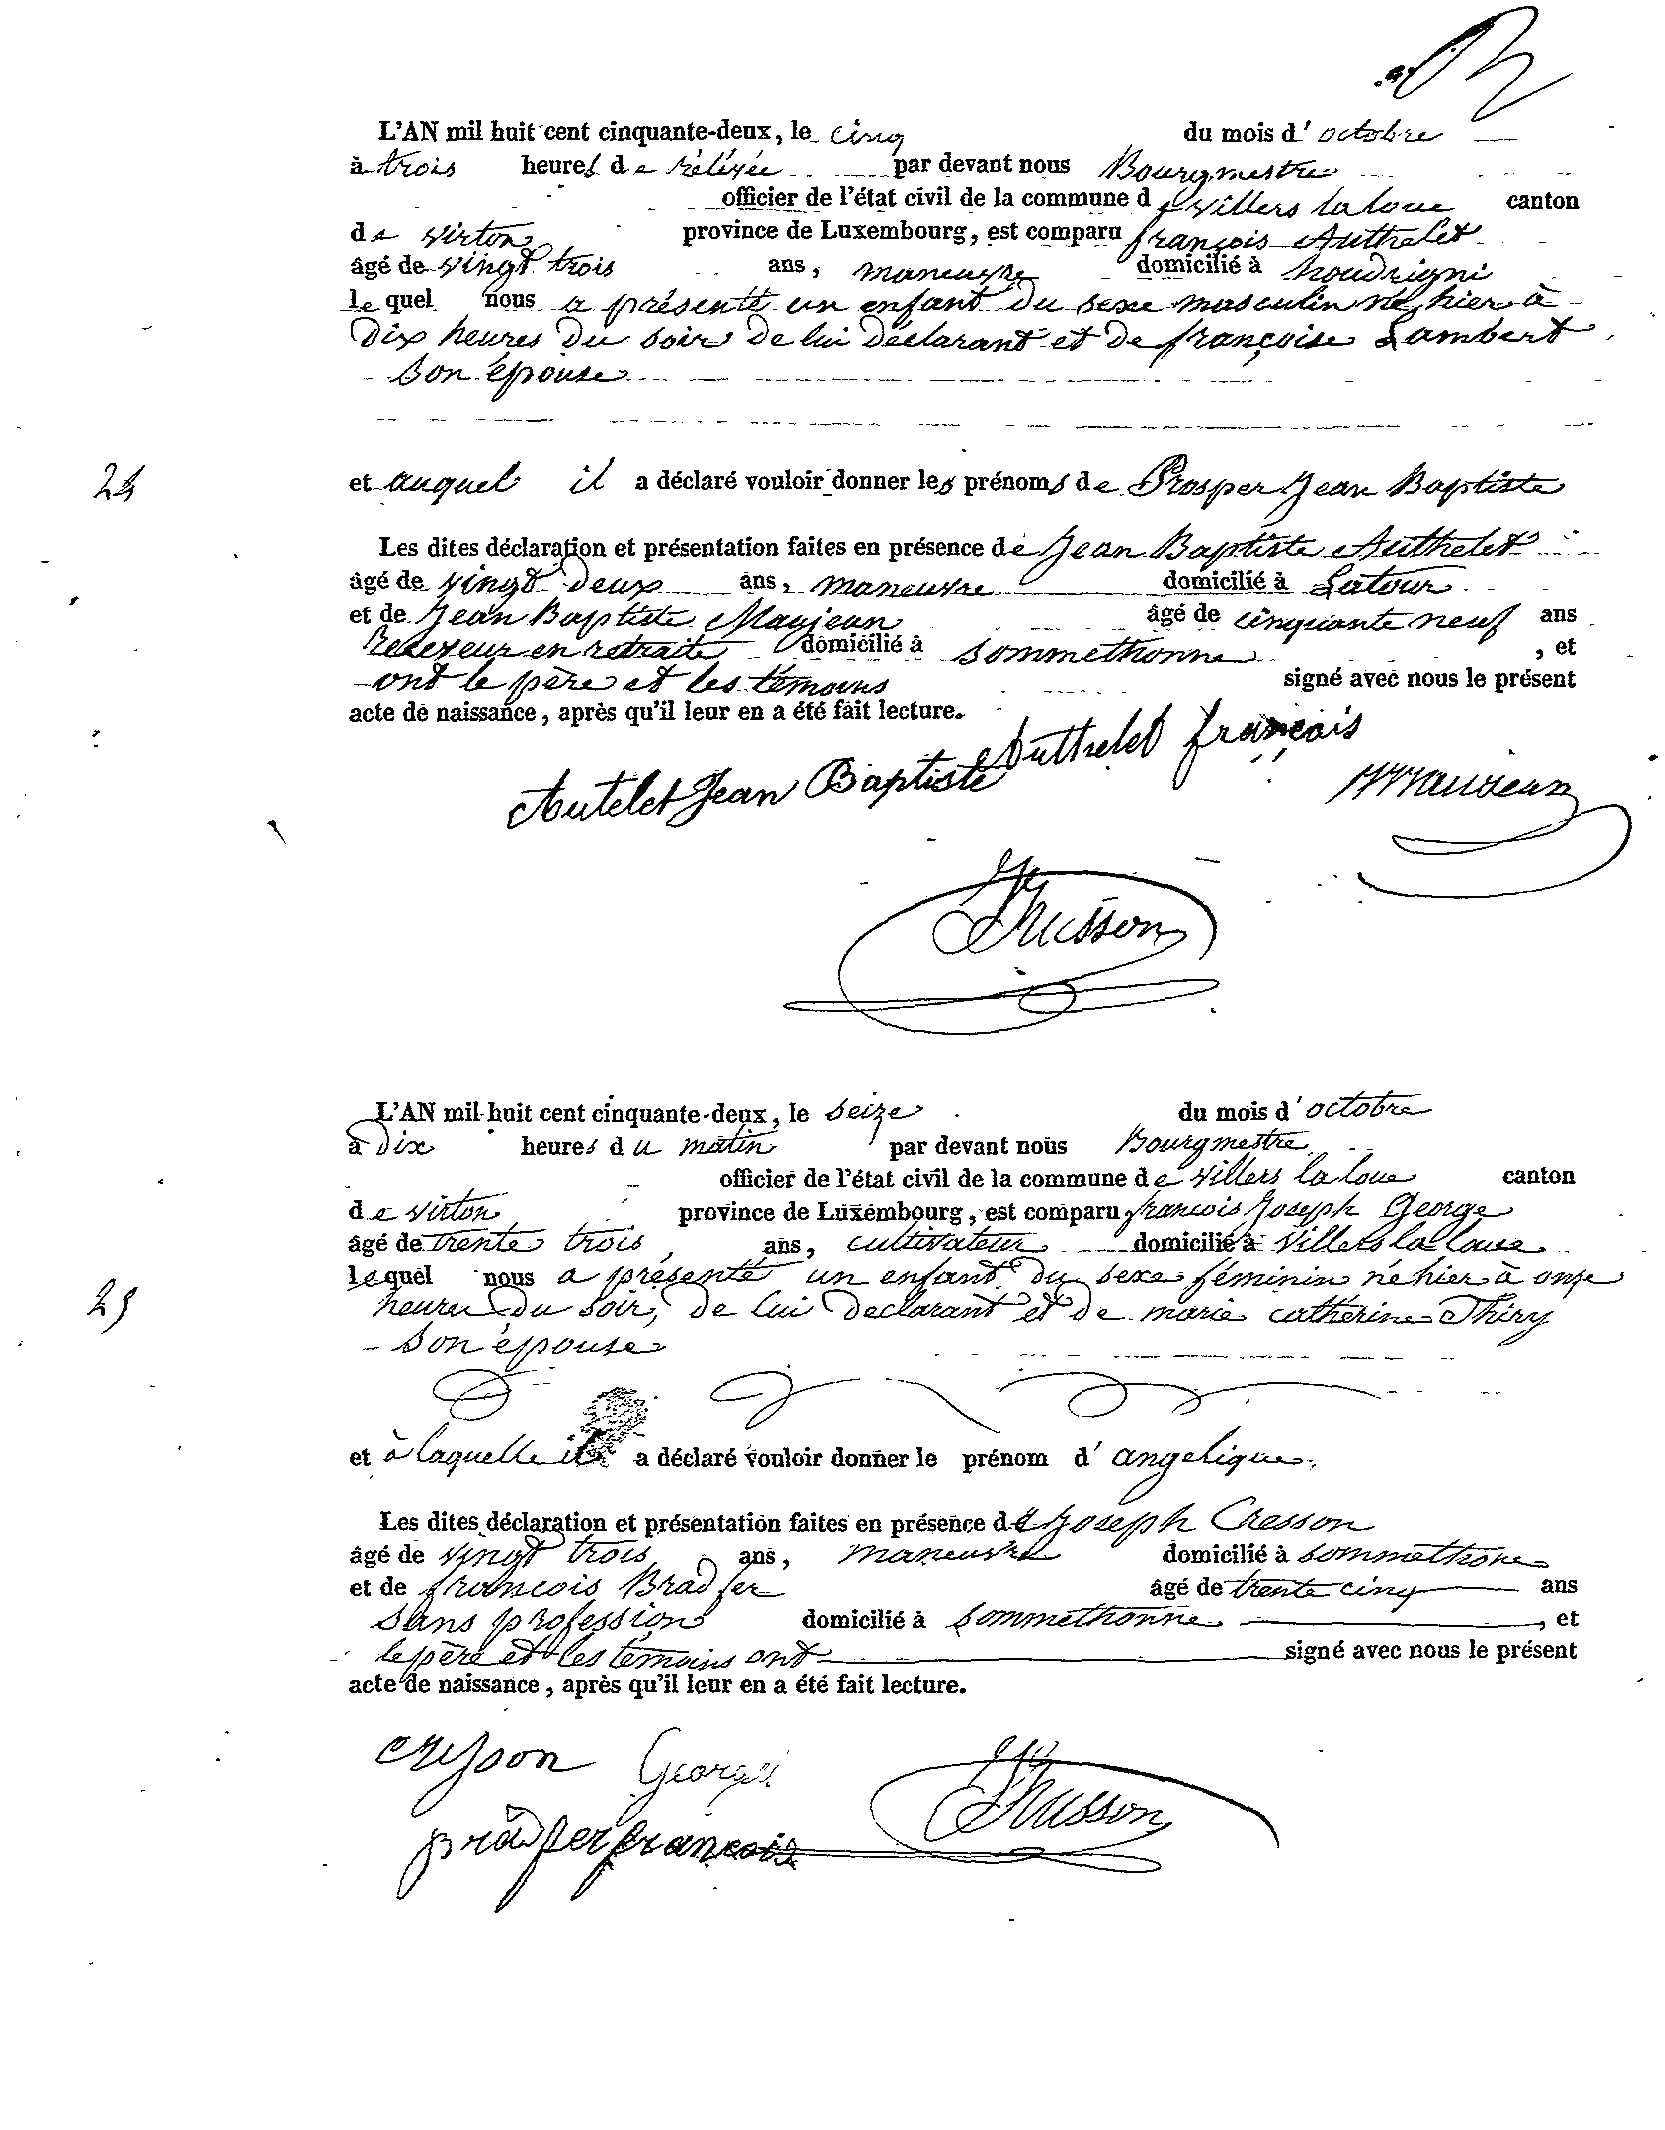 L'AN mil huit cent cinquante-deux, le cinq du mois d' octobre
à trois heures de rélévée par devant nous Bourgmestre
officier de l'état civil de la commune de villers la loue canton
de virton province de Luxembourg, est comparu françois Authelet
âgé de vingt trois ans, maneuvre domicilié à houdrigni
le quel nous a présenté un enfant du sexe masculin né hier à
dix heures du soir de lui déclarant et de françoise Lambert
son épouse
24 et auquel il a déclaré vouloir donner les prénoms de Prosper Jean Baptiste
Les dites déclaration et présentation faites en présence de Jean Baptiste Authelet
âgé de vingt deux ans, maneuvre domicilié à Latour
et de Jean Baptiste Maujean âgé de cinquante neuf ans
Receveur en retraite domicilié à sommethonne , et
ont le père et les témoins signé avec nous le présent
acte de naissance, après qu'il leur en a été fait lecture.
Authelet françois
Autelet Jean Baptiste
Maujean
Husson
L'AN mil huit cent cinquante-deux, le seize du mois d' octobre
à dix heures du matin par devant nous Bourgmestre
officier de l'état civil de la commune de villers la loue canton
de virton province de Luxembourg, est comparu francois Joseph George
âgé de trente trois ans, cultivateur domicilié à villers la loue
lequel nous a présenté un enfant du sexe féminin né hier à onze
25 heures du soir, de lui declarant et de marie catherine Thiry
son épouse
et à laquelle il a déclaré vouloir donner le prénom d' angelique
Les dites déclaration et présentation faites en présence de Joseph Cresson
âgé de vingt trois ans, maneuvre domicilié à sommethone
et de francois Bradfer âgé de trente cinq ans
sans profession domicilié à sommethonne , et
le père et les témoins ont signé avec nous le présent
acte de naissance, après qu'il leur en a été fait lecture.
cresson George
Husson
bradfer francois